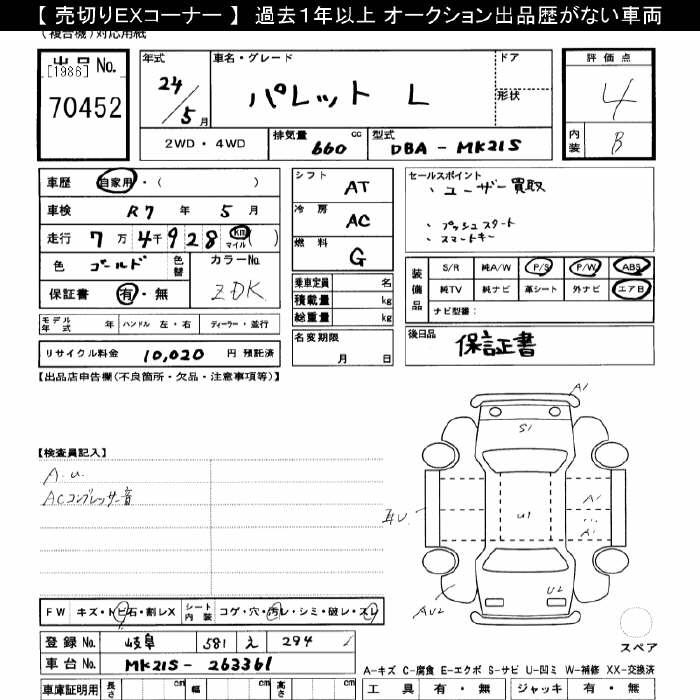 【 売切りEXコーナー 】 過去1年以上 オークション出品歴がない車両
(複合機)対応用紙
出品No.
[1986]
70452
年式
24/5月
車名・グレード
パレット L
ドア
形状
評価点
4
内装
B
2WD・4WD
排気量
660
cc
型式
DBA-MK21S
車歴
自家用・( )
車検
R7 年 5 月
走行
7万4千928
km
マイル
( )
色
ゴールド
色替
カラーNo.
ZDK
保証書
有・無
モデル年式
年
ハンドル 左・右
ディーラー・並行
リサイクル料金
10,020
円 預託済
シフト
AT
冷房
AC
燃料
G
乗車定員
名
積載量
kg
総重量
kg
名変期限
月 日
セールスポイント
・ユーザー買取
・プッシュスタート
・スマートキー
装備品
S/R 純A/W P/S P/W ABS
純TV 純ナビ 革シート 外ナビ エアB
ナビ型番:
後日品
保証書
【出品店申告欄(不良箇所・欠品・注意事項等)】
【検査員記入】
A.u.
ACコンプレッサー音
A1
S1
U1
A1
A1
U2
AU2
FW
キズ・トビ石・割レX
シート内装
コゲ・穴・汚レ・シミ・破レ・スレ
登録No.
岐阜
581
え
294
車台No.
MK21S-263361
スペア
A-キズ C-腐食 E-エクボ S-サビ U-凹ミ W-補修 XX-交換済
車庫証明用
長さ
cm
幅
cm
高さ
cm
工具
有・無
ジャッキ
有・無